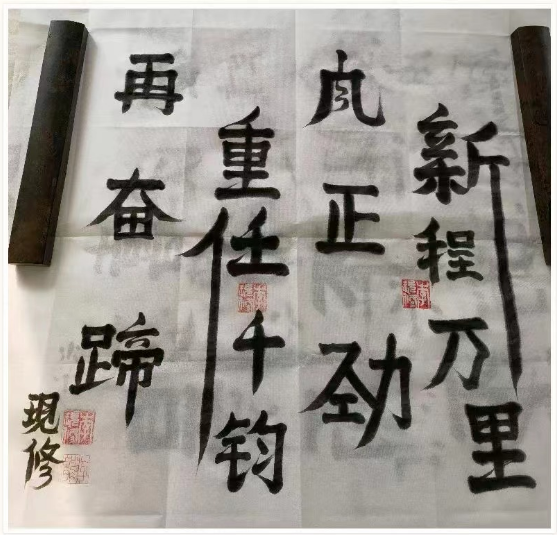 新程万里
风正劲
重任千钧
再奋蹄
現修